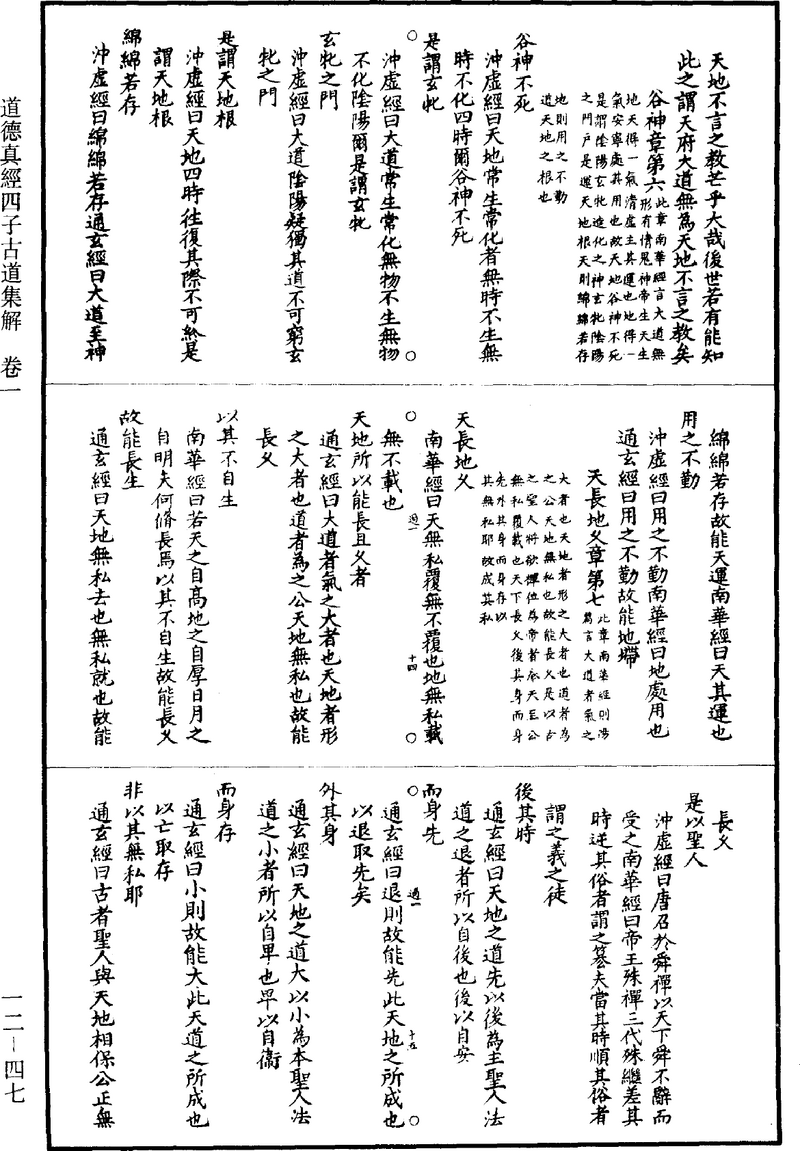 天地不言之教芒乎大哉後世若有能知
此之謂天府大道無為天地不言之教矣
谷神章第六
此章南華經言大道無
形有情鬼神帝生天生
地天得一氣清虛主其運也地得一
氣安寧處其用也故天地谷神不死
是謂陰陽玄牝造化之神玄牝陰陽
之門戶是道天地根天則綿綿若存
地則用之不勤
道天地之根也
谷神不死
沖虛經曰天地常生常化者無時不生無
時不化四時爾谷神不死
是謂玄牝
沖虛經曰大道常生常化無物不生無物
不化陰陽爾是謂玄牝
玄牝之門
沖虛經曰大道陰陽疑獨其道不可窮玄
牝之門
是謂天地根
沖虛經曰天地四時往復其際不可終是
謂天地根
綿綿若存
沖虛經曰綿綿若存通玄經曰大道至神
綿綿若存故能天運南華經曰天其運也
用之不勤
沖虛經曰用之不勤南華經曰地處用也
通玄經曰用之不勤故能地滯
天長地久章第七
此章南華經則陽
篇言大道者氣之
大者也天地者形之大者也道者為
之公天地無私也故能長久是以古
之聖人將欲禪位為帝者依天至公
無私覆載也天下長久後其身而身
先外其身而身存以
其無私耶故成其私
天長地久
南華經曰天無私覆無不覆也地無私載
無不載也
過一
十四
天地所以能長且久者
通玄經曰大道者氣之大者也天地者形
之大者也道者為之公天地無私也故能
長久
以其不自生
南華經曰若天之自高地之自厚日月之
自明夫何脩長焉以其不自生故能長久
故能長生
通玄經曰天地無私去也無私就也故能
長久
是以聖人
沖虛經曰唐召於舜禪以天下舜不辭而
受之南華經曰帝王殊禪三代殊繼差其
時逆其俗者謂之篡夫當其時順其俗者
謂之義之徒
後其時
通玄經曰天地之道先以後為主聖人法
道之退者所以自後也後以自安
而身先
通玄經曰退則故能先此天地之所成也
過一
十五
以退取先矣
外其身
通玄經曰天地之道大以小為本聖人法
道之小者所以自卑也卑以自衛
而身存
通玄經曰小則故能大此天道之所成也
以亡取存
非以其無私耶
通玄經曰古者聖人與天地相保公正無
道德真經四子古道集解 卷一
一二－四七